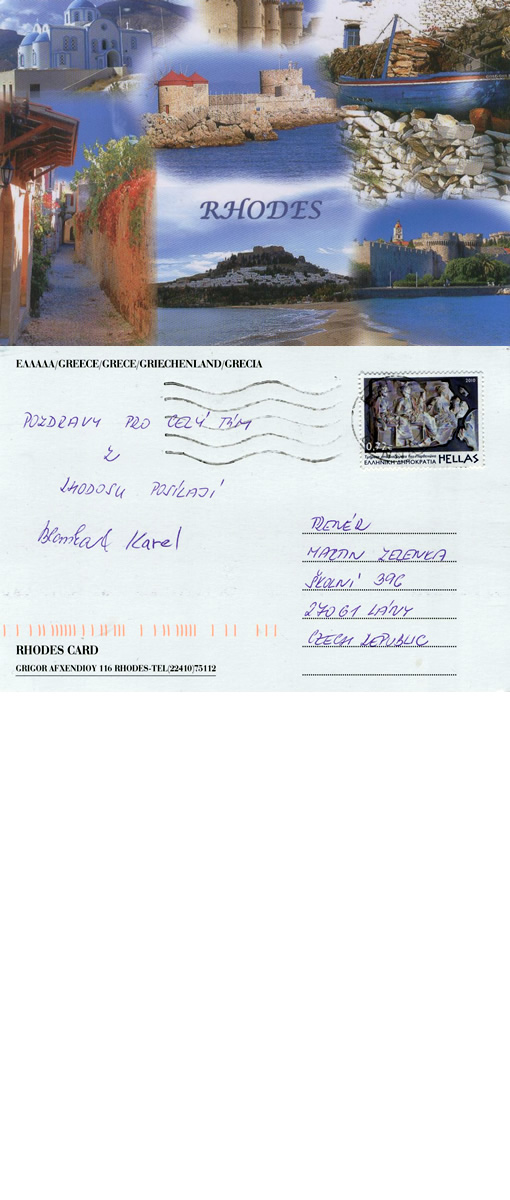 RHODES
ΕΛΛΑΔΑ/GREECE/GRECE/GRIECHENLAND/GRECIA
2010
0,72€
ΕΛΛΗΝΙΚΗ ΔΗΜΟΚΡΑΤΙΑ HELLAS
POZDRAVY PRO CELÝ TÝM
Z
RHODOSU POSÍLAJÍ
Karel
TRENÉR
MARTIN ZELENKA
ŠKOLNÍ 396
270 61 LÁNY
CZECH REPUBLIC
RHODES CARD
GRIGOR AFXENDIOY 116 RHODES-TEL(22410)75112